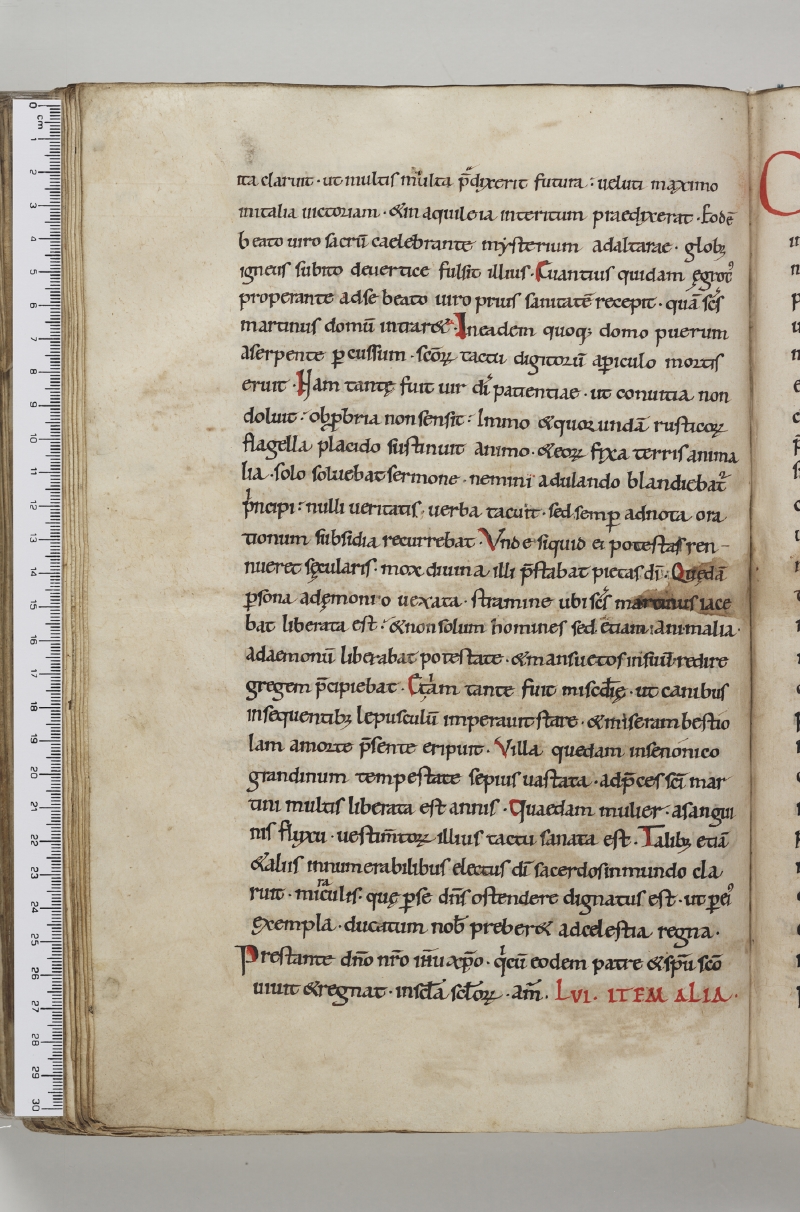 ita claruit · ut multis multa p̄dixerit futura : ueluti maximo
initalia uictoriam · & in aquileia interitum praedixerat · Eodē
beato uiro sacrū caelebrante mysterium adaltarae · globꝫ
igneus subito deuertice fulsit illius · Euantius quidam ęgrot᷒
properante adse beato uiro prius sanitatē recepit · quā sc̄s
martinus domū intrar& · Ineadem quoqꝫ domo puerum
aserpente ꝑcussum · sc̄oꝝ tactu digitorū apiculo mortis
eruit · Nam tantę fuit uir di patientiae · ut conuitia non
doluit : obꝓbria nonsensit : Immo & quorundā rusticoꝝ
flagella placido sustinuit animo · & eoꝝ fixa terris anima
lia · solo soluebat sermone · nemini adulando blandiebat᷒
p̍ncipi : nulli ueritatis · uerba tacuit · sed semꝑ adnota ora
tionum subsidia recurrebat · Vnde siquid ei potestas ren-
nueret sęcularis · mox diuina illi p̄stabat pietas dī · Quędā
ꝑsona adęmonio uexata · stramine ubi sc̄s martinus iace
bat liberata est : & nonsolum homines sed etiam animalia ·
adaemonū liberabat potestate · & mansuetos insuū redire
gregem p̄cipiebat · Etiam tante fuit miscdię · ut canibus
insequentibꝫ lepusculū imperauit stare · & miseram bestio
lam amorte p̄sente eripuit · Villa quedam insenonico
grandinum tempestate sepius uastata · adp̄ces sc̄i mar
tini multis liberata est annis · Quaedam mulier · asangui
nis fluxu · uestim̄toꝝ illius tactu sanata est · Talibꝫ etiā
& aliis innumerabilibus electus dī sacerdos inmundo cla
ruit · miraculis · quę ꝑse dn̄s ostendere dignatus est · ut ꝑei᷒
exempla · ducatum nob̄ preber& adcelestia regna ·
Prestante dn̄o nr̄o ih̄u xp̄o · q̍ cū eodem patre & sp̄u sc̄o
uiuit & regnat · insc̄la sc̄loꝝ · am̄. LVI · ITEM ALIA ·